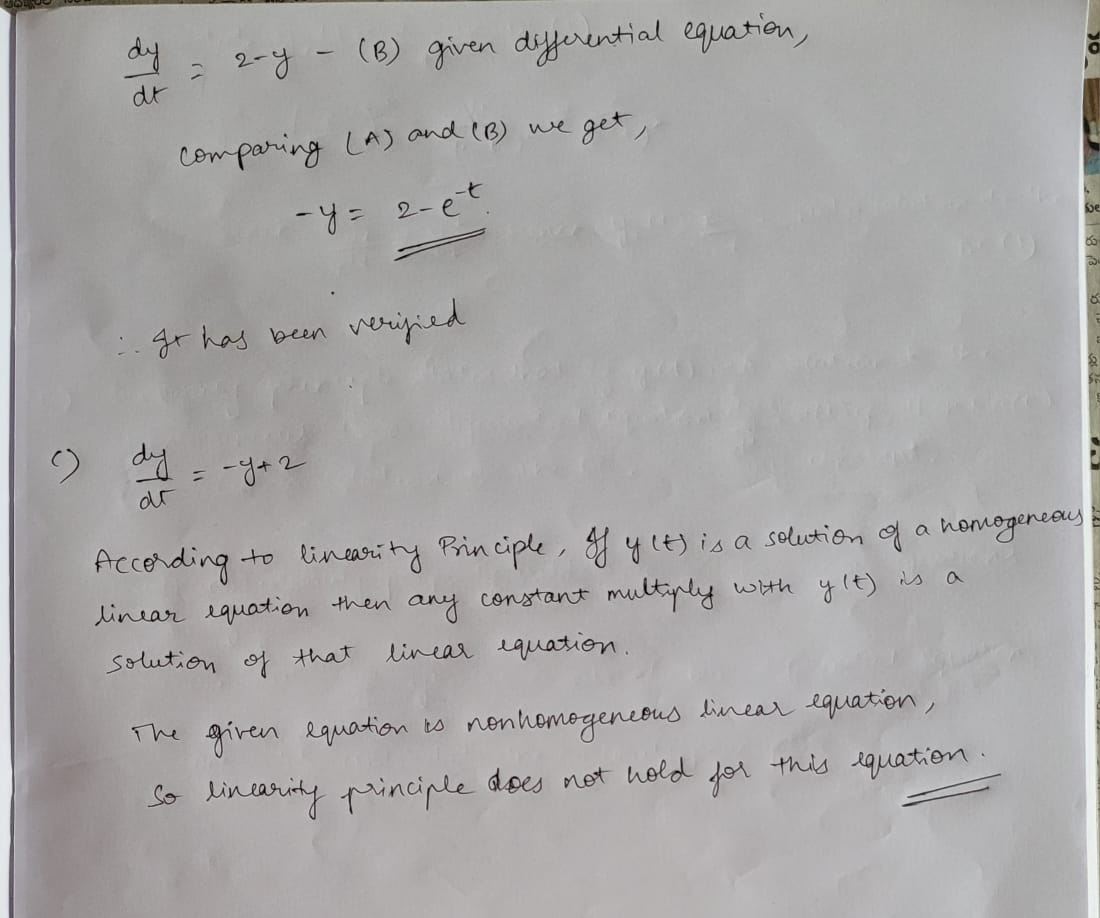 dy/dt = 2-y - (B) given differential equation,
comparing (A) and (B) we get,
-y = 2-e^-t.
∴ It has been verified
c) dy/dt = -y+2
According to linearity Principle, If y(t) is a solution of a homogeneous
linear equation then any constant multiply with y(t) is a
solution of that linear equation.
The given equation is nonhomogeneous linear equation,
So linearity principle does not hold for this equation.